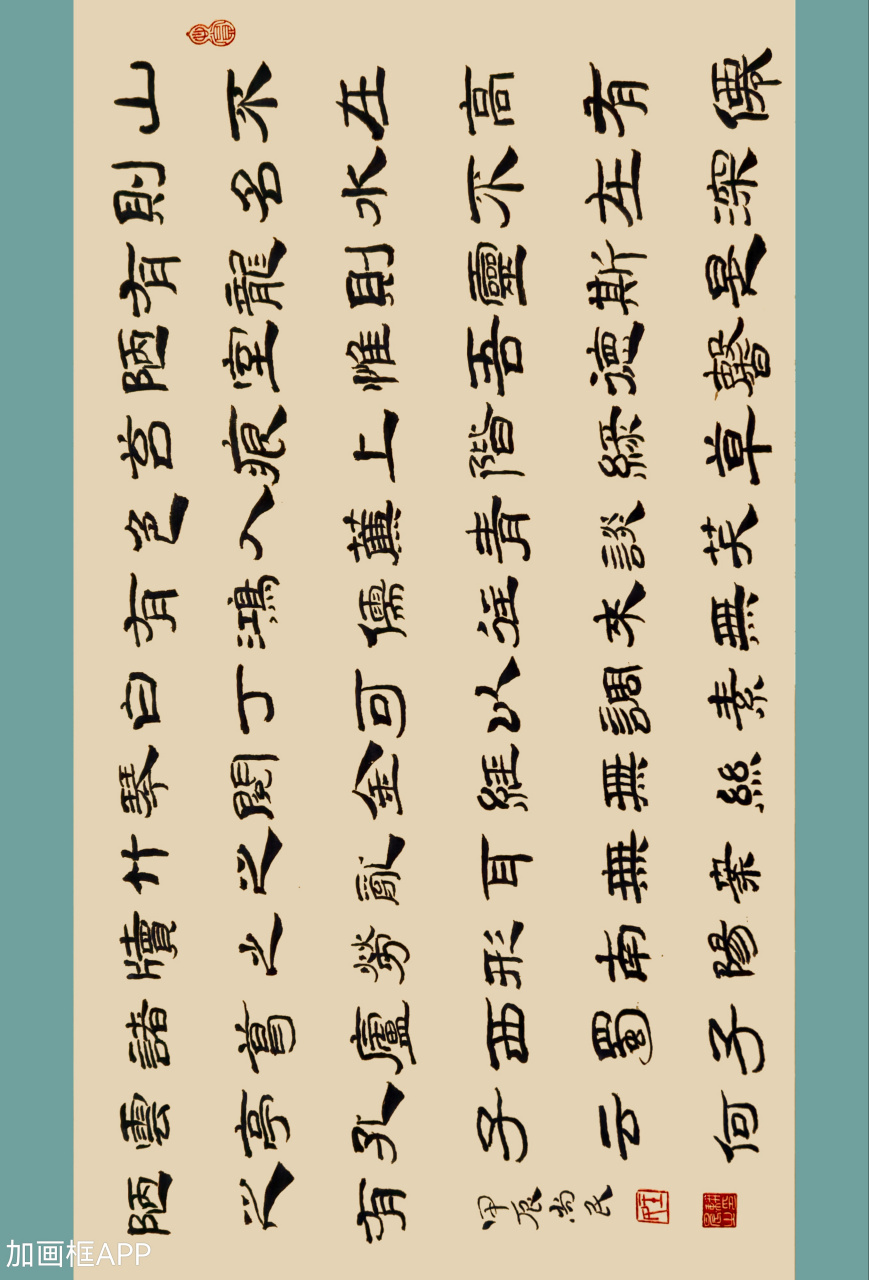 山不在高有僊
則名水不在深
有龍則靈斯是
陋室惟吾德馨
苔痕上階綠草
色入簾青談笑
有鴻儒往來無
白丁可以調素
琴閱金經無絲
竹之亂耳無案
牘之勞形南陽
諸葛廬西蜀子
雲亭孔子云何
陋之有
甲辰尚民
加画框APP